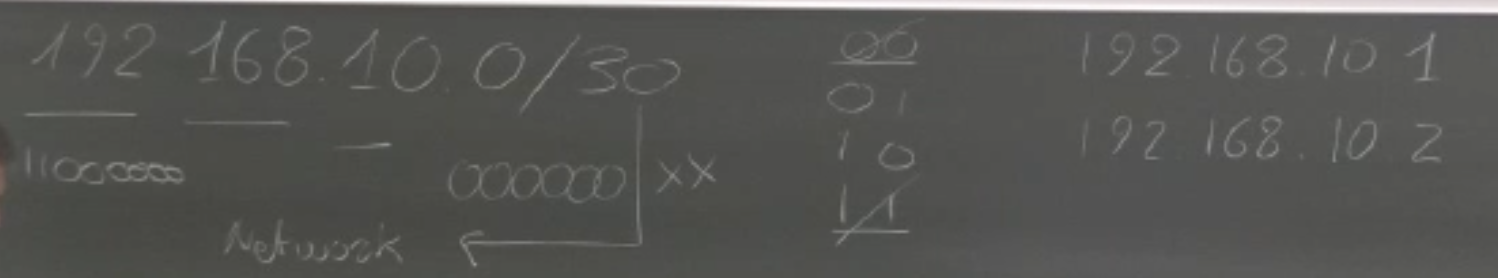 192 168.10.0/30
11000000
000000 xx
Network
00
01
10
11
192.168.10 1
192 168.10 2